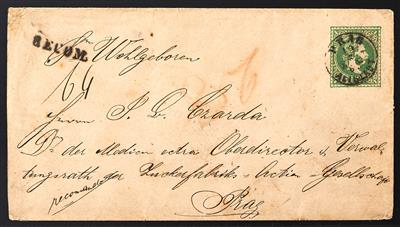 RECOM.
PRAG
Sr. Wohlgeboren
64
Herrn J. L. Czarda
Dr. der Medicin Oberdirector & Verwal-
tungsrath der Zuckerfabriks-Actien-Gesellschaft
recomandirt
Prag